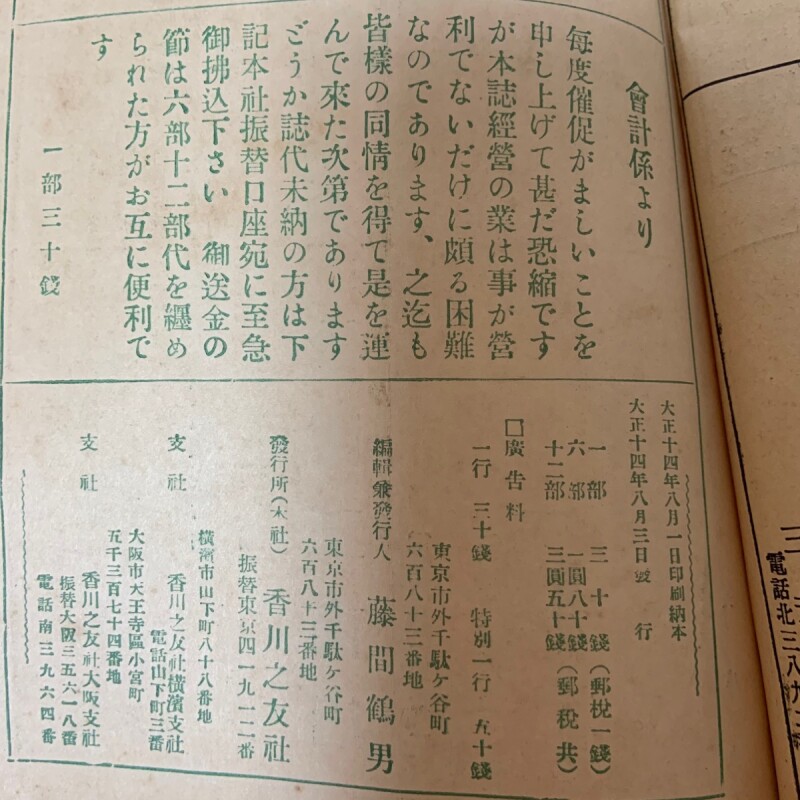 會計係より
毎度催促がましいことを
申し上げて甚だ恐縮です
が本誌經營の業は事が營
利でないだけに頗る困難
なのであります、之迄も
皆樣の同情を得て是を運
んで來た次第であります
どうか誌代未納の方は下
記本社振替口座宛に至急
御拂込下さい 御送金の
節は六部十二部代を纒め
られた方がお互に便利で
す
一部三十錢
大正十四年八月一日印刷納本
大正十四年八月三日發行
一部 三十錢(郵稅一錢)
六部 一圓八十錢
十二部 三圓五十錢(郵稅共)
□廣告料
一行 三十錢 特別一行 五十錢
東京市外千駄ケ谷町
六百八十三番地
編輯兼發行人 藤間鶴男
東京市外千駄ケ谷町
六百八十三番地
發行所(本社) 香川之友社
振替東京四一九一二番
橫濱市山下町八十八番地
支社 香川之友社橫濱支社
電話山下町三番
大阪市天王寺區小宮町
五千三百七十四番地
支社 香川之友社大阪支社
振替大阪三五六一八番
電話南三九六四番
三
電話北三八九二